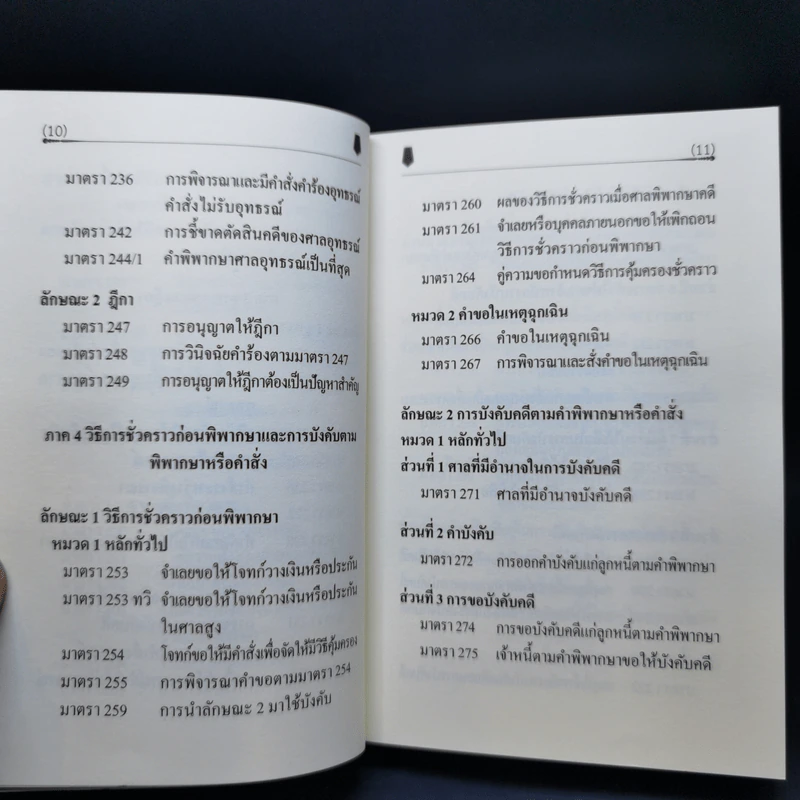 (10)
มาตรา 236 การพิจารณาและมีคำสั่งคำร้องอุทธรณ์
คำสั่งไม่รับอุทธรณ์
มาตรา 242 การชี้ขาดตัดสินคดีของศาลอุทธรณ์
มาตรา 244/1 คำพิพากษาศาลอุทธรณ์เป็นที่สุด
ลักษณะ 2 ฎีกา
มาตรา 247 การอนุญาตให้ฎีกา
มาตรา 248 การวินิจฉัยคำร้องตามมาตรา 247
มาตรา 249 การอนุญาตให้ฎีกาต้องเป็นปัญหาสำคัญ
ภาค 4 วิธีการชั่วคราวก่อนพิพากษาและการบังคับตาม
พิพากษาหรือคำสั่ง
ลักษณะ 1 วิธีการชั่วคราวก่อนพิพากษา
หมวด 1 หลักทั่วไป
มาตรา 253 จำเลยขอให้โจทก์วางเงินหรือประกัน
มาตรา 253 ทวิ จำเลยขอให้โจทก์วางเงินหรือประกัน
ในศาลสูง
มาตรา 254 โจทก์ขอให้มีคำสั่งเพื่อจัดให้มีวิธีคุ้มครอง
มาตรา 255 การพิจารณาคำขอตามมาตรา 254
มาตรา 259 การนำลักษณะ 2 มาใช้บังคับ
(11)
มาตรา 260 ผลของวิธีการชั่วคราวเมื่อศาลพิพากษาคดี
มาตรา 261 จำเลยหรือบุคคลภายนอกขอให้เพิกถอน
วิธีการชั่วคราวก่อนพิพากษา
มาตรา 264 คู่ความขอกำหนดวิธีการคุ้มครองชั่วคราว
หมวด 2 คำขอในเหตุฉุกเฉิน
มาตรา 266 คำขอในเหตุฉุกเฉิน
มาตรา 267 การพิจารณาและสั่งคำขอในเหตุฉุกเฉิน
ลักษณะ 2 การบังคับคดีตามคำพิพากษาหรือคำสั่ง
หมวด 1 หลักทั่วไป
ส่วนที่ 1 ศาลที่มีอำนาจในการบังคับคดี
มาตรา 271 ศาลที่มีอำนาจบังคับคดี
ส่วนที่ 2 คำบังคับ
มาตรา 272 การออกคำบังคับแก่ลูกหนี้ตามคำพิพากษา
ส่วนที่ 3 การขอบังคับคดี
มาตรา 274 การขอบังคับคดีแก่ลูกหนี้ตามคำพิพากษา
มาตรา 275 เจ้าหนี้ตามคำพิพากษาขอให้บังคับคดี